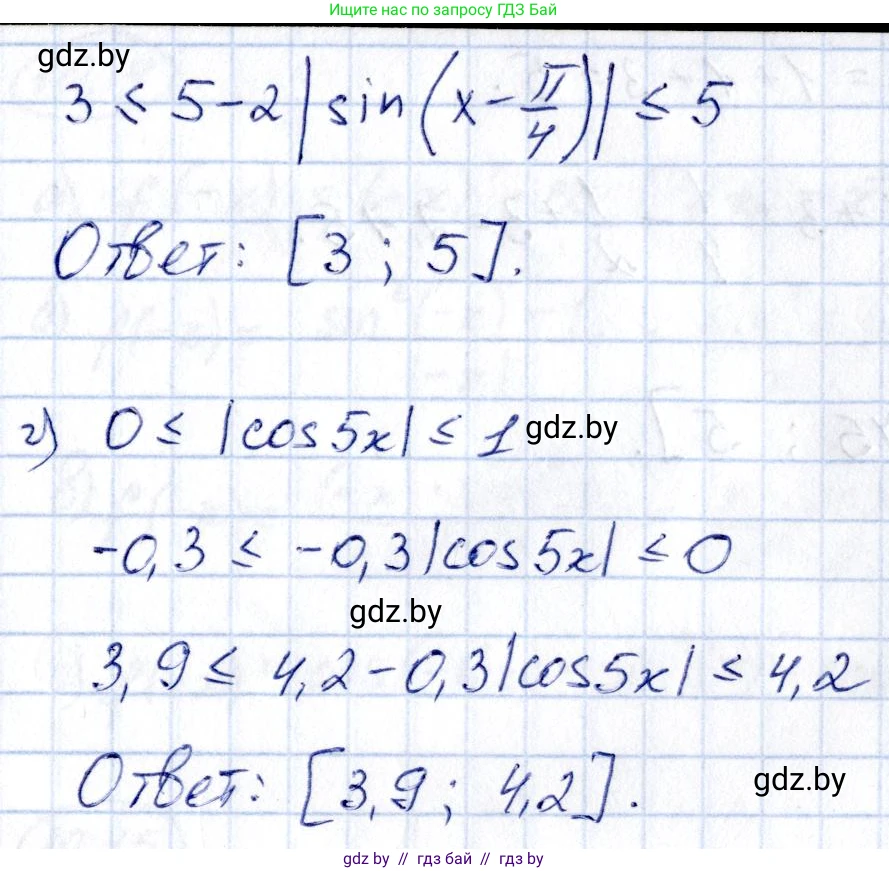 Ищите нас по запросу ГДЗ Бай
gdz.by
3 ≤ 5 - 2 | sin (x - π/4) | ≤ 5
Ответ: [3 ; 5].
г) 0 ≤ |cos 5x| ≤ 1 gdz.by
-0,3 ≤ -0,3 |cos 5x| ≤ 0
gdz.by
3,9 ≤ 4,2 - 0,3 |cos 5x| ≤ 4,2
Ответ: [3,9 ; 4,2]. gdz.by
gdz by // гдз бай // гдз by